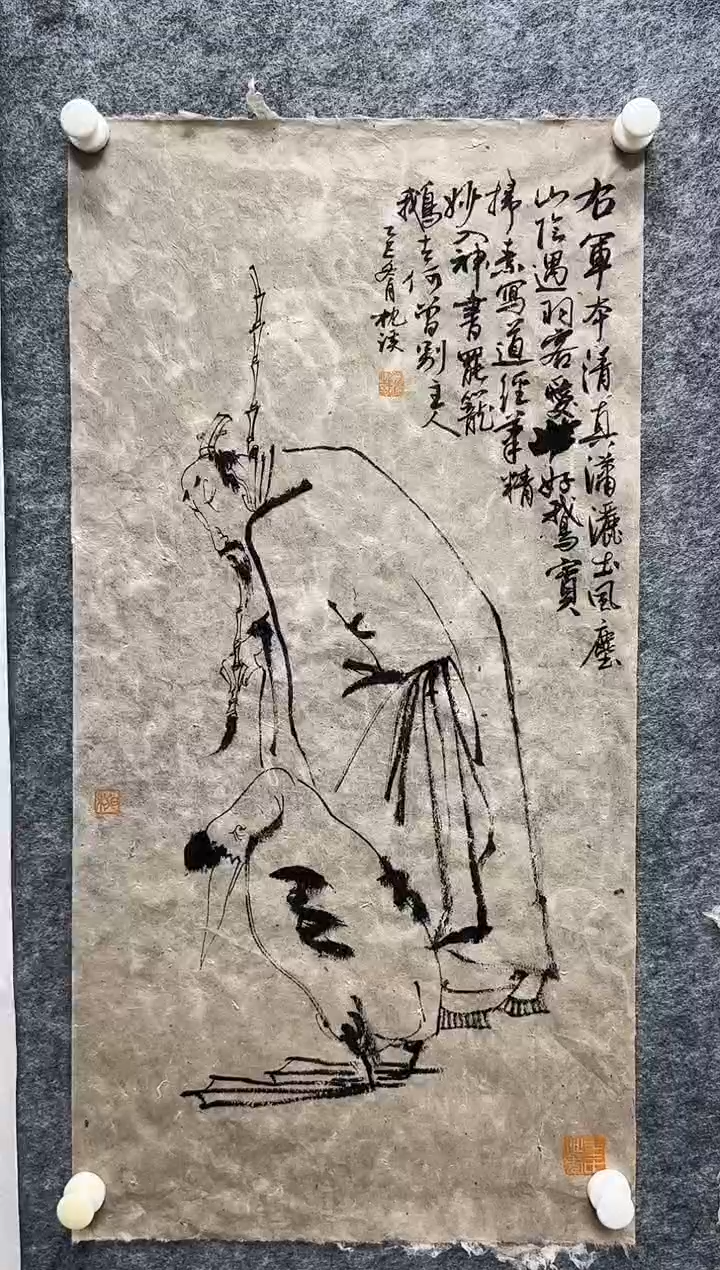 右軍本清真瀟灑出风塵
山陰遇羽客愛好鵝寶
掃素寫道經筆精
妙入神書罷籠
鵝去何曾別主人
乙巳